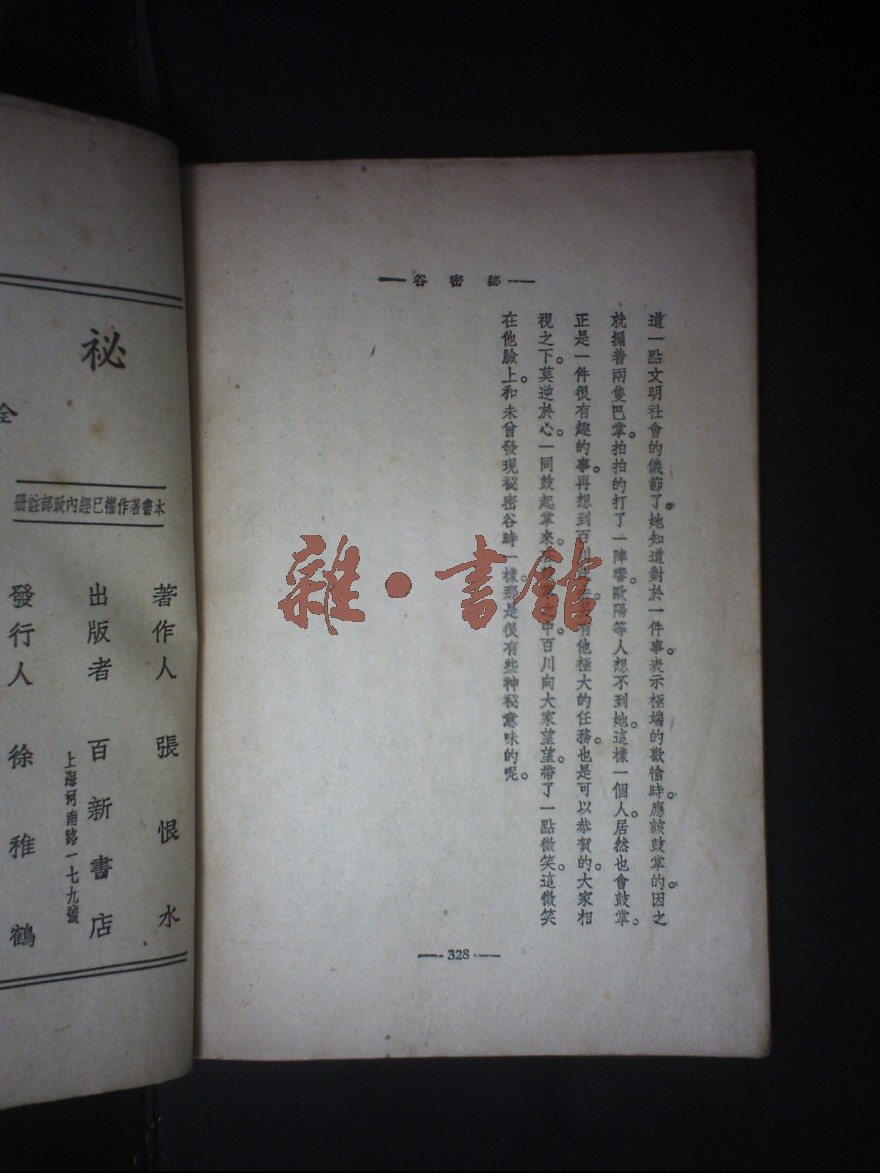 秘密谷
道一點文明社會的儀節了。她知道對於一件事。表示極端的歡愉時。應該鼓掌的。因之
就擱着兩隻巴掌。拍拍的打了一陣響。歐陽等人想不到她。這樣一個人。居然也會鼓掌。
正是一件很有趣的事。再想到百川 有他極大的任務。也是可以恭賀的。大家相
視之下。莫逆於心。一同鼓起掌來。 中。百川向大家望望。帶了一點微笑。這微笑
在他臉上。和未曾發現秘密谷時一樣。那是很有些神秘意味的呢。
328
雜·書館
祕
全
本書著作權已經內政部註册
著作人 張恨水
出版者 百新書店
上海河南路一七九號
發行人 徐稚鶴